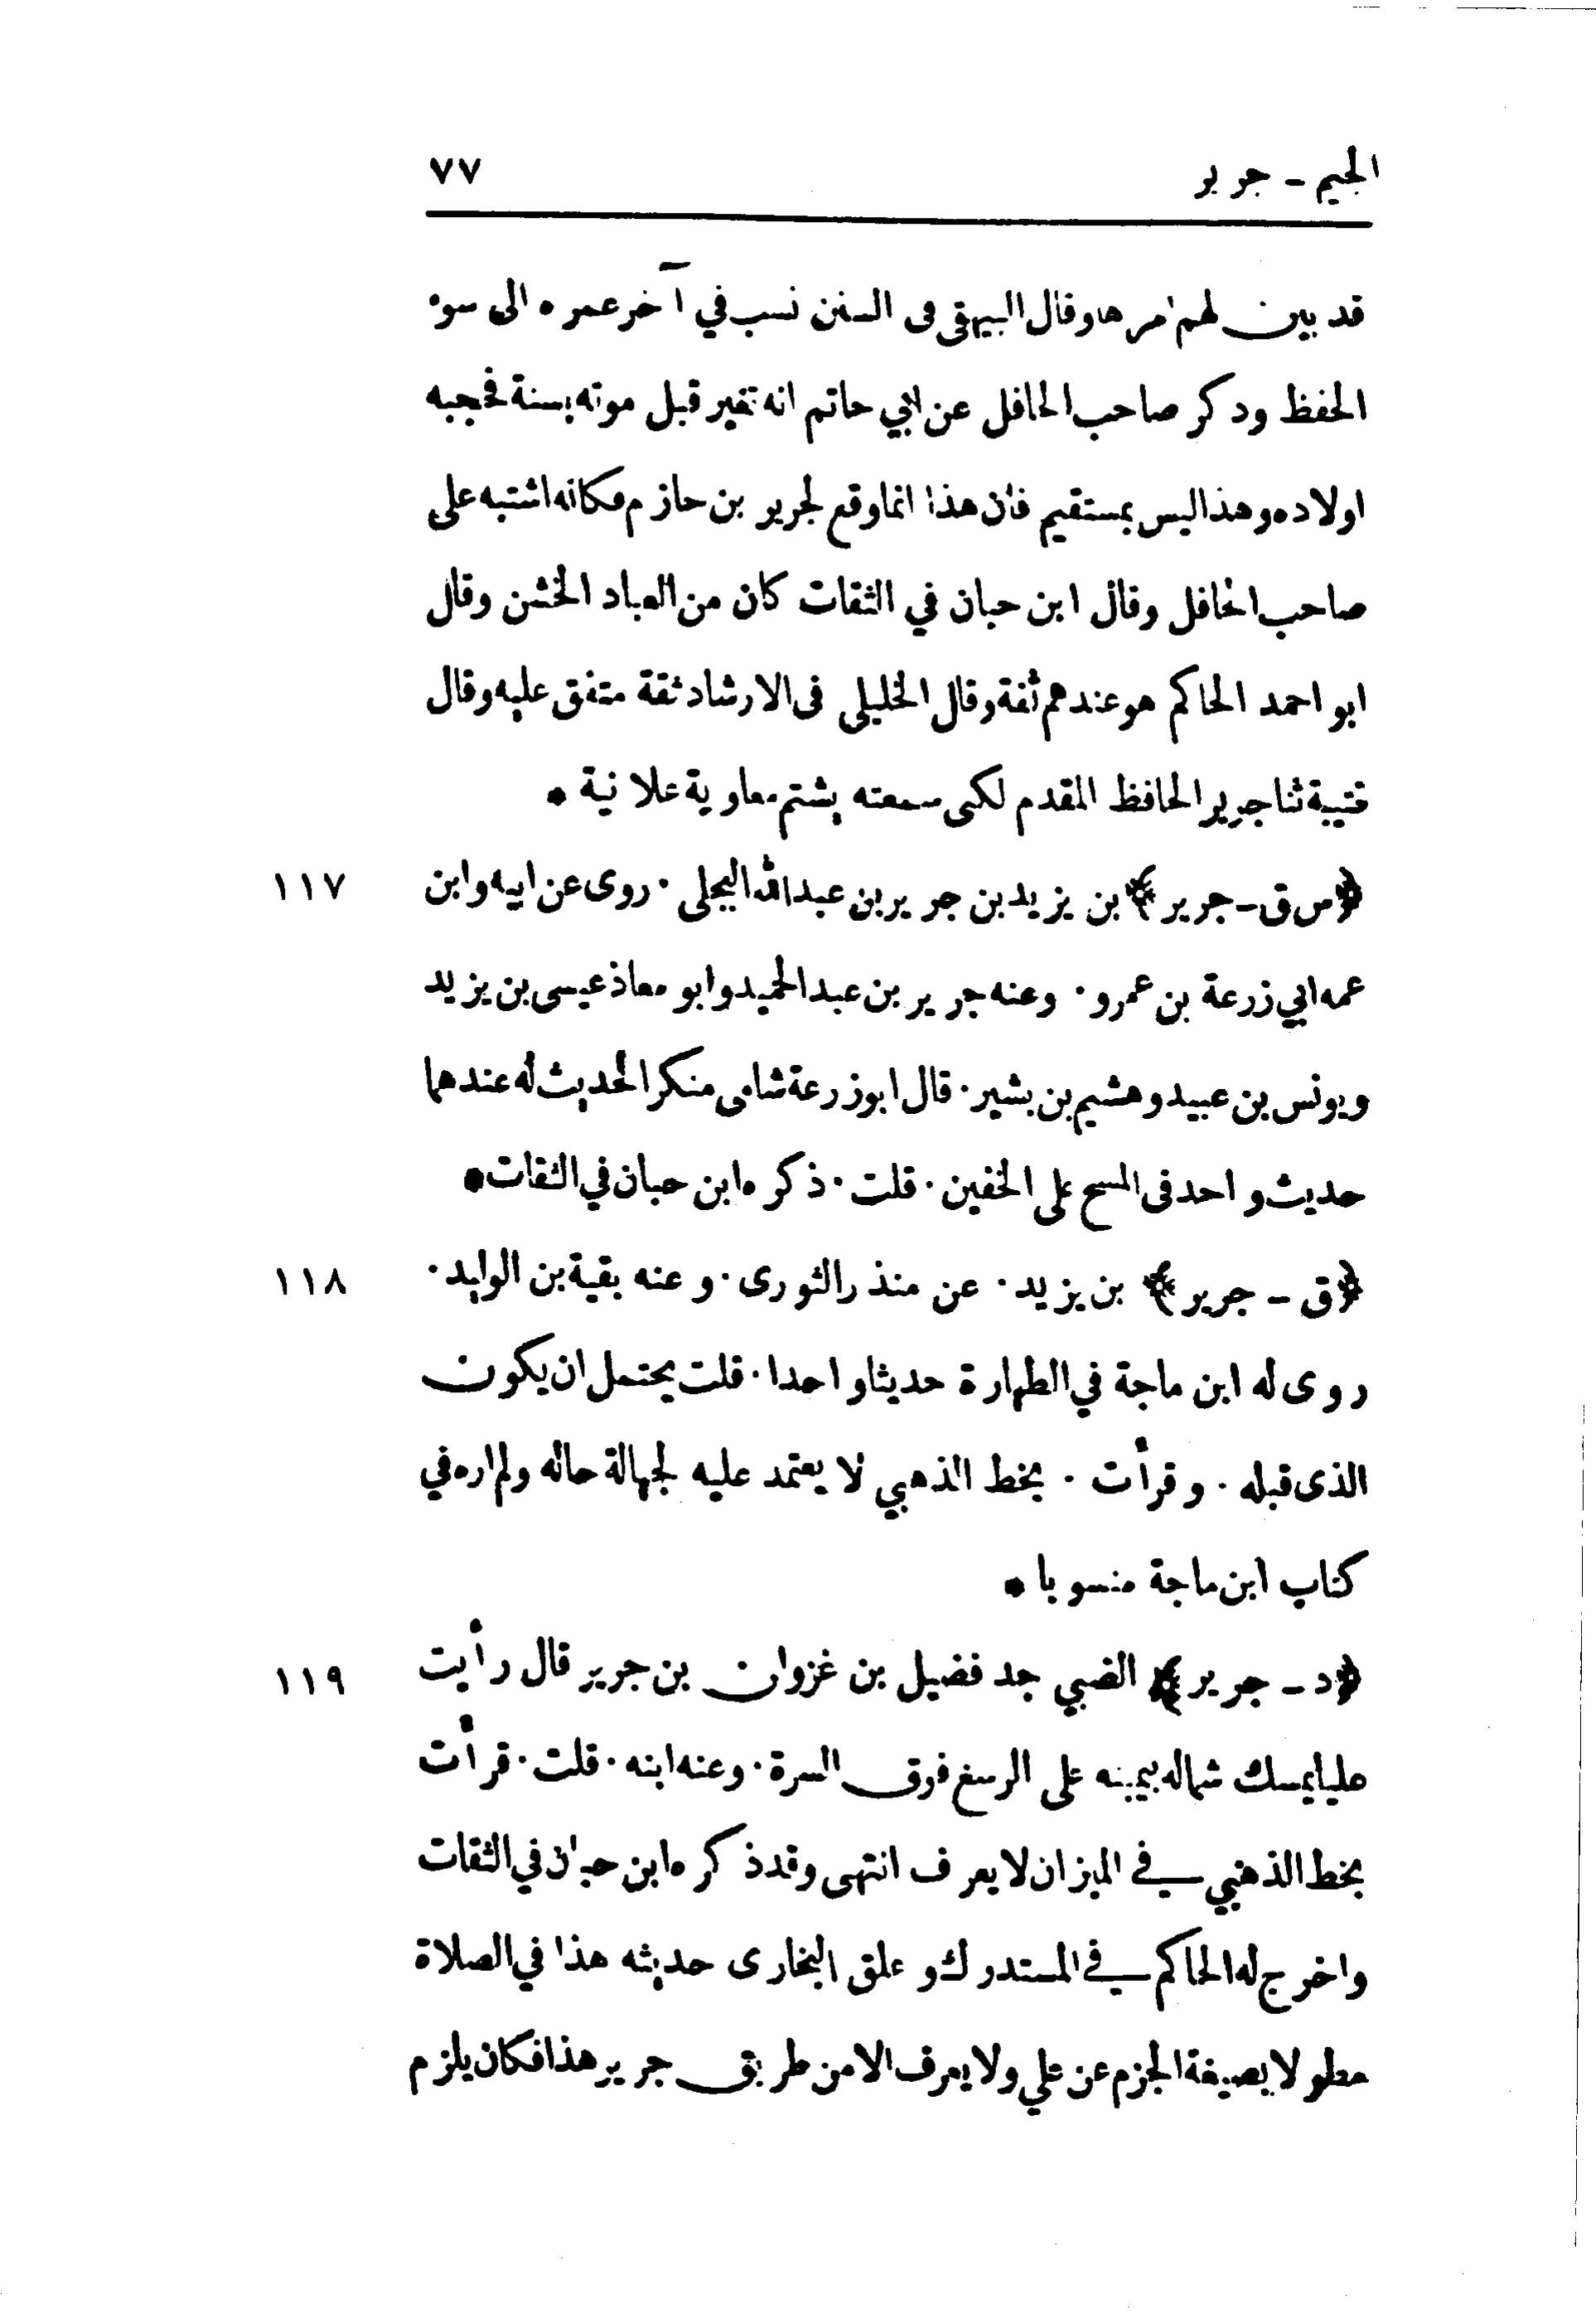 الجيم - جرير ٧٧
قد بين لهم امرها وقال البيهقى فى السنن نسب في آخر عمره الى سوء
الحفظ وذكر صاحب الحافل عن ابي حاتم انه تغير قبل موته بسنة فحجبه
اولاده وهذا ليس بمستقيم فان هذا انما وقع لجرير بن حازم فكانه اشتبه على
صاحب الحافل وقال ابن حبان في الثقات كان من العباد الخشن وقال
ابو احمد الحاكم هو عندهم ثقة وقال الخليلى فى الارشاد ثقة متفق عليه وقال
قتيبة ثنا جرير الحافظ المقدم لكنى سمعته يشتم معاوية علانية *
﴿س ق - جرير﴾ بن يزيد بن جرير بن عبدالله البجلى . روى عن ابيه وابن ١١٧
عمه ابي زرعة بن عمرو . وعنه جرير بن عبد الحميد وابو معاذ عيسى بن يزيد
ويونس بن عبيد وهشيم بن بشير . قال ابوزرعة شامى منكر الحديث له عندهما
حديث واحد فى المسح على الخفين . قلت . ذكره ابن حبان في الثقات *
﴿ق - جرير﴾ بن يزيد . عن منذر الثورى . وعنه بقية بن الوليد . ١١٨
روى له ابن ماجة في الطهارة حديثا واحدا . قلت يحتمل ان يكون
الذى قبله . وقرأت . بخط الذهبي لا يعتمد عليه لجهالة حاله ولم اره في
كتاب ابن ماجة منسوبا *
﴿د - جرير﴾ الضبي جد فضيل بن غزوان بن جرير قال رأيت ١١٩
عليا يمسك شماله بيمينه على الرسغ فوق السرة . وعنه ابنه . قلت . قرأت
بخط الذهبي في الميزان لا يعرف انتهى وقد ذكره ابن حبان في الثقات
واخرج له الحاكم في المستدرك وعلق البخارى حديثه هذا في الصلاة
مطولا بصيغة الجزم عن علي ولا يعرف الا من طريق جرير هذا فكان يلزم